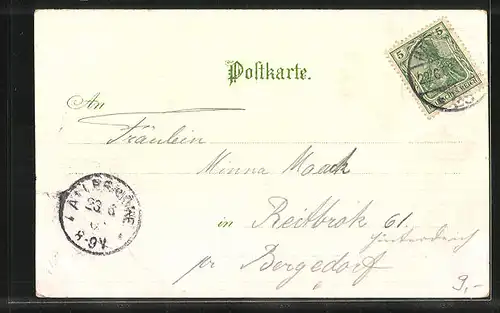 Postkarte.
An
Fräulein
Minna Maack
in Reitbrok 61.
Hinterdeich
pr Bergedorf
9,-
5 5
23 6
8-9V.